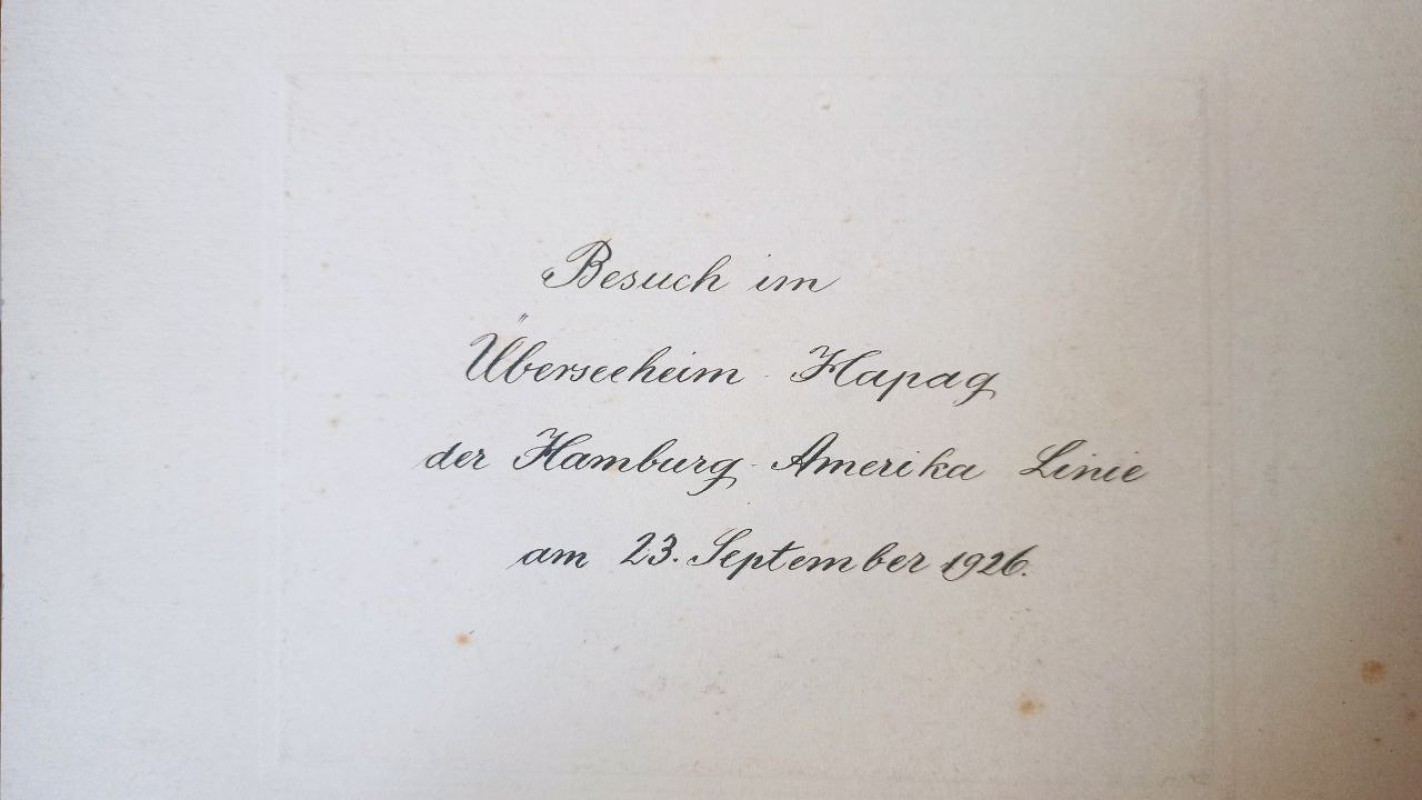 Besuch im
Überseeheim - Hapag
der Hamburg - Amerika Linie
am 23. September 1926.